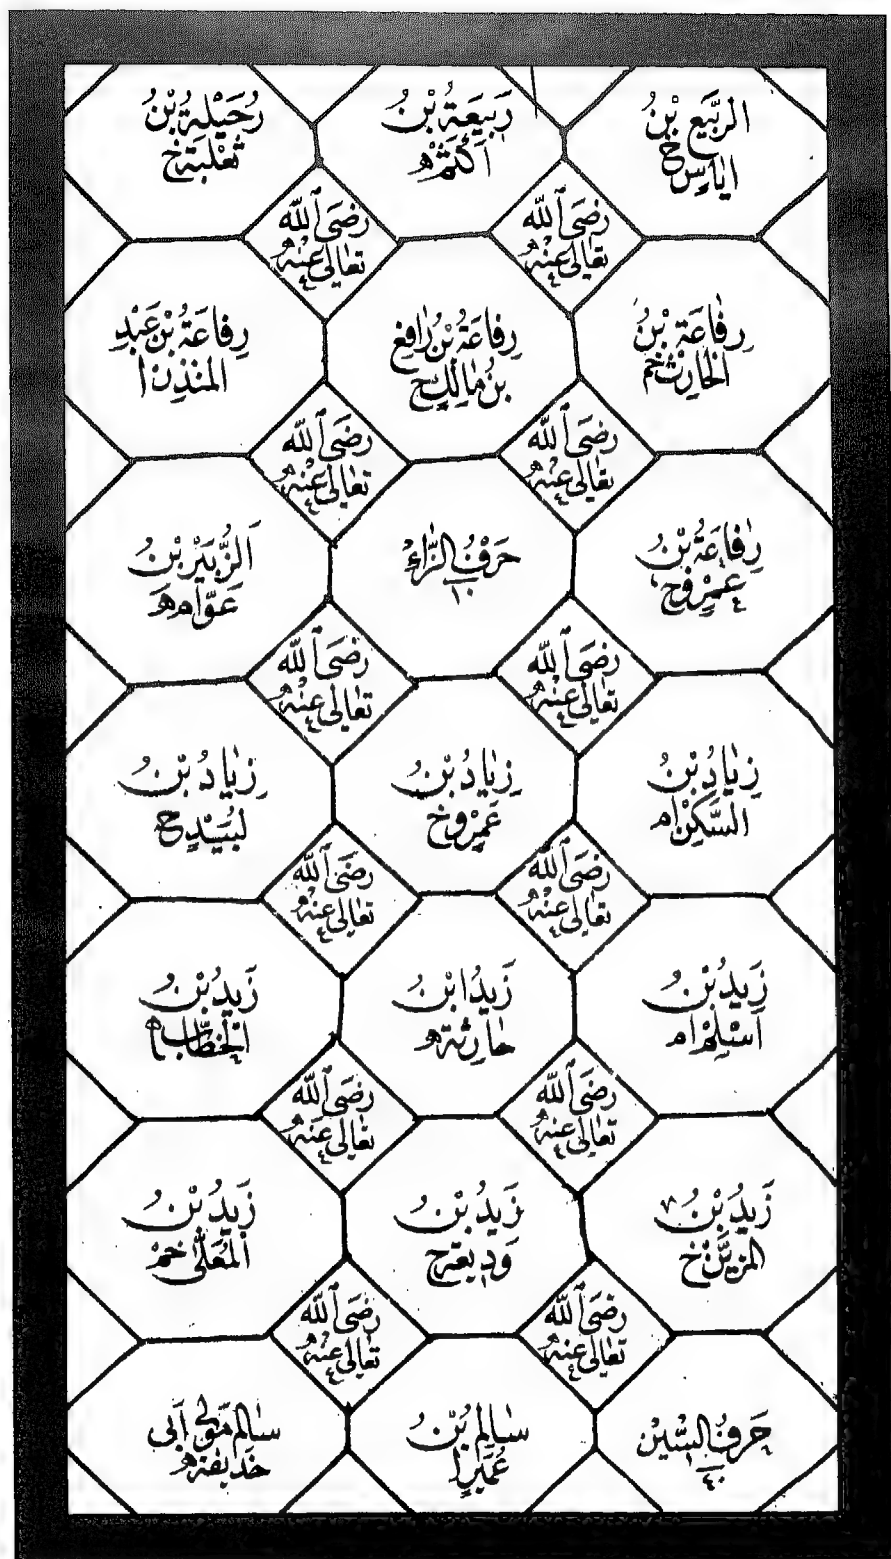 الرَّبِيع بْنُ
اِيَاسٍ خ
رَبِيعَةُ بْنُ
اَكْثَمْ ه
رُحَيْلَةُ بْنُ
ثَعْلَبَةَ خ
رَضِيَ ٱللّٰه
تَعَالٰى عَنْهُ
رَضِيَ ٱللّٰه
تَعَالٰى عَنْهُ
رِفَاعَةُ بْنُ
الْحَارِثْ خم
رِفَاعَةُ بْنُ رَافِعْ
بنُ مَالِكٍ ح
رِفَاعَةُ بْنُ عَبْدِ
الْمُنْذِرْ ا
رَضِيَ ٱللّٰه
تَعَالٰى عَنْهُ
رَضِيَ ٱللّٰه
تَعَالٰى عَنْهُ
رِفَاعَةُ بْنُ
عَمْرٍو ح
حَرْفُ الزَّاءِ
١٠
اَلزُّبَيْرُ بْنُ
عَوَّام ه
رَضِيَ ٱللّٰه
تَعَالٰى عَنْهُ
رَضِيَ ٱللّٰه
تَعَالٰى عَنْهُ
زِيَادُ بْنُ
السَّكَنْ ام
زِيَادُ بْنُ
عَمْرٍو خ
زِيَادُ بْنُ
لَبِيْدٍ ح
رَضِيَ ٱللّٰه
تَعَالٰى عَنْهُ
رَضِيَ ٱللّٰه
تَعَالٰى عَنْهُ
زَيدُ بْنُ
اَسْلَمْ ام
زَيدُ ابْنُ
حَارِثَة ه
زَيدُ بْنُ
الْخَطَّاب ه
رَضِيَ ٱللّٰه
تَعَالٰى عَنْهُ
رَضِيَ ٱللّٰه
تَعَالٰى عَنْهُ
زَيدُ بْنُ
الْمزين خ
زَيدُ بْنُ
وَدِيعَة ح
زَيدُ بْنُ
الْمُعَلّٰى خم
رَضِيَ ٱللّٰه
تَعَالٰى عَنْهُ
رَضِيَ ٱللّٰه
تَعَالٰى عَنْهُ
حَرفُ السِّيْن
٤٠
سَالِم بْنُ
عُمَيْرٍ ا
سَالِم مَوْلٰى اَبِى
حُذَيفَة ه